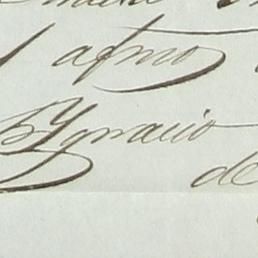 afmo
Ygnacio
de